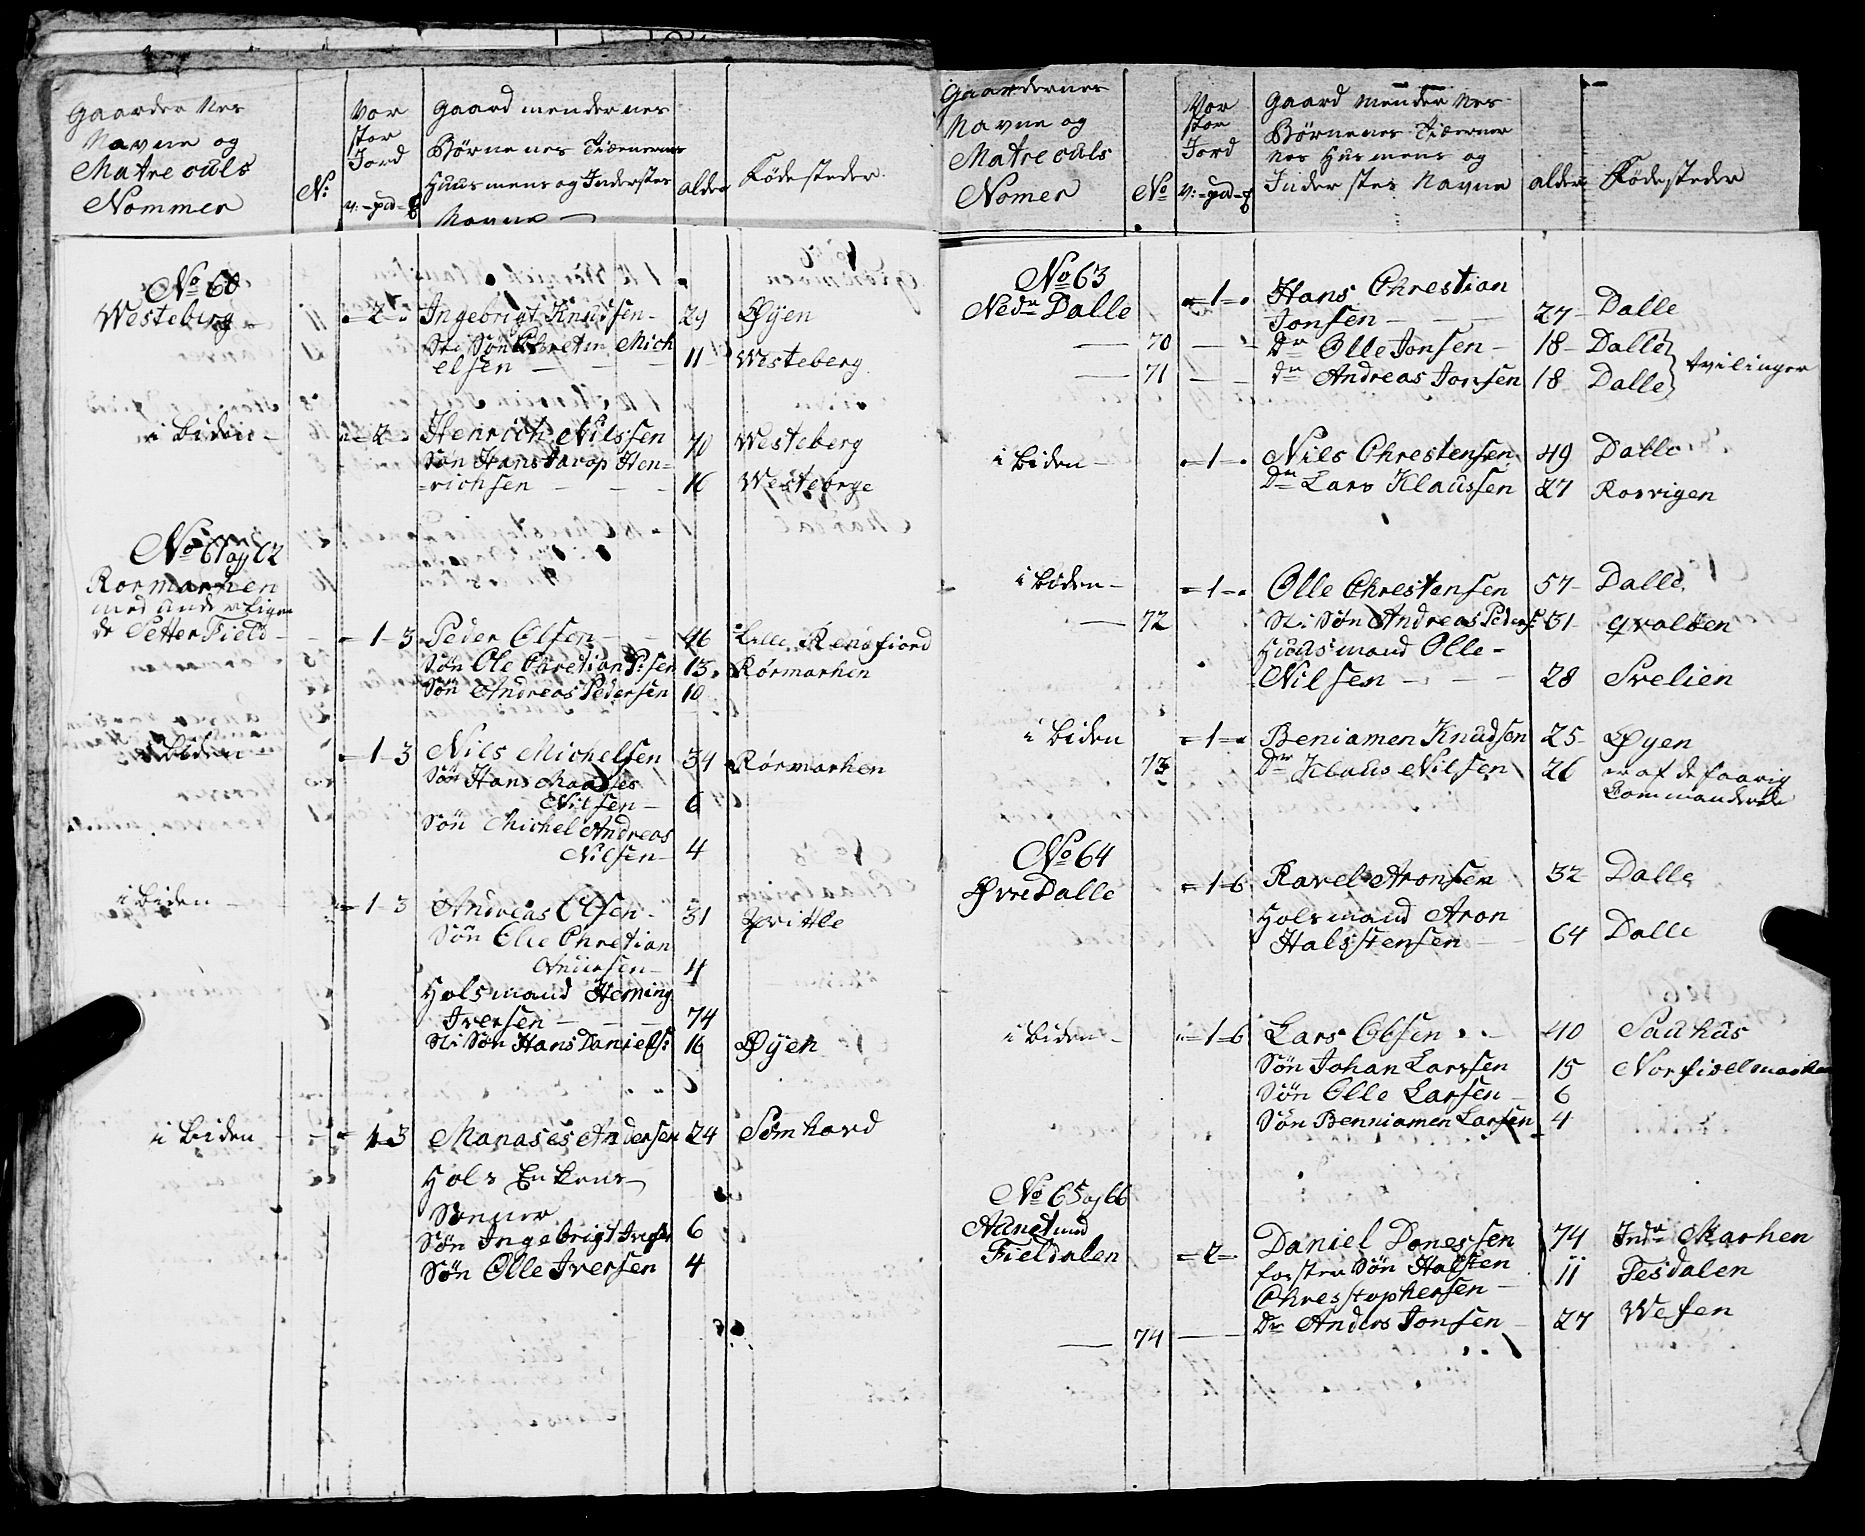 Gaardernes
Navne og
Matreculs
Nommer
No:
Vor
stor
Jord
v: - pd - 
Gaard mendernes
Børnenes Tiæenernes
Huusmens og Inderstes
Navne
alder
Fødesteder
No 60
Westeberg
2
Ingebrigt Knudsen 29 Øyen
Sti Søn Chretin Mich
elsen 11 Westeberg
i biden 2 Henrich Nilssen 70 Westeberg
Søn Hans Jacop Hen=
richsen 16 Westebrge
No 61 og 62
Rormarken
med underligen
de Setter Field 1-3 Peder Olsen 46 Lille Rensfiord
Søn Ole Chretian P:sen 13 Rørmarken
Søn Andreas Pedersen 10
i biden 1-3 Nils Michelsen 34 Rørmarken
Søn Hans Maases
Nilsen 6
Søn Michel Andreas
Nilsen 4
i biden 1-3 Andreas Olsen 31
Søn Olle Chretian
Andersen 4
Holsmand Heming
Iversen 74
Sti Søn Hans Daniels: 16 Øyen
i biden 1-3 Manases Andersen 24 Sømhovd
Hols Enkens
Sønner
Søn Ingebrigt Ivers 6
Søn Olle Iversen 4
Gaardernes
Navne og
Matreculs
Nomer
No
Vor
stor
Jord
v: - pd - 
Gaard mendernes
Børnenes Tiæerner
nes Husmens og
Inderstes Navne
alder
Fødesteder
No 63
Nedr Dalle 1 Hans Chrestian
Jonsen 27 Dalle
70 Dr Olle Jonsen 18 Dalle
71 dr Andreas Jonsen 18 Dalle
tvilinger
i biden 1 Nils Chrestensen 49 Dalle
Dr Lars Klaussen 27 Rosvigen
i biden 1 Olle Chrestensen 57 Dalle
72 Sti Søn Andreas Peders: 31 Gvaløen
Huusmand Olle
Nilsen 28 Svelien
i biden 1 Beniamen Knudsen 25 Øyen
73 Dr Klaus Nilsen 26 er af de faarig
Commanderede
No 64
Øvre Dalle 1-6 Ravel Aronsen 32 Dalle
Holsmand Aron
Halsstensen 64 Dalle
i biden 1-6 Lars Olsen 40 Sauhus
Søn Johan Larssen 15
Søn Olle Larsen 6
Søn Benniamen Larsen 4
No 65 og 66
Aunet und
Fieldalen 2 Daniel Donessen 74 Indr Marken
forster Søn Halsten
Chresstophersen 11 Tesdalen
74 Dr Anders Jonsen 27 Wesen